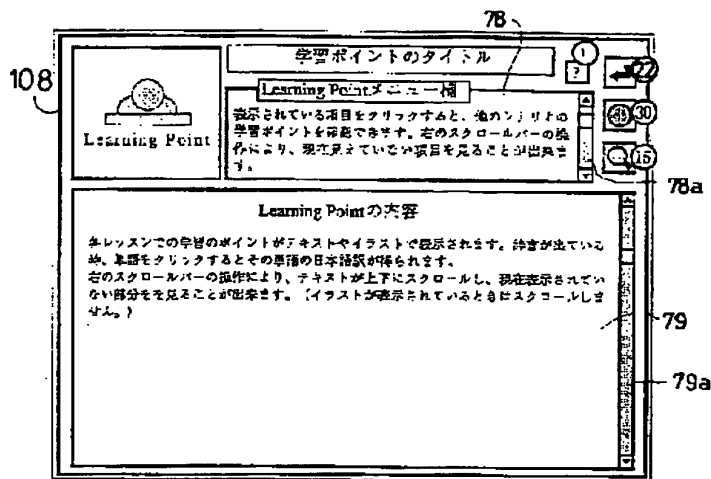 78
108
学習ポイントのタイトル
1
?
22
Learning Pointメニュー欄
30
表示されている項目をクリックすると、他のシナリオの
学習ポイントを確認できます。右のスクロールバーの操
作により、現在見えていない項目を見ることが出来ま
す。
15
Learning Point
78a
Learning Pointの内容
各レッスンでの学習のポイントがテキストやイラストで表示されます。
時、単語をクリックするとその単語の日本語訳が得られます。
右のスクロールバーの操作により、テキストが上下にスクロールし、現在表示されてい
ない部分をを見ることが出来ます。(イラストが表示されているときはスクロールしま
せん。)
79
79a